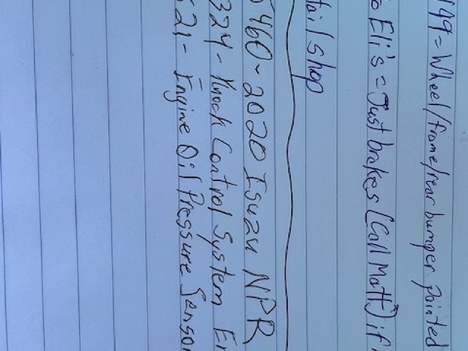 149 = Wheel/frame/rear bumper painted
o Eli's = Just brakes (Call Matt) if
tail shop
5460 - 2020 Isuzu NPR
324 - Knock Control System Er
521 - Engine Oil Pressure Sensor